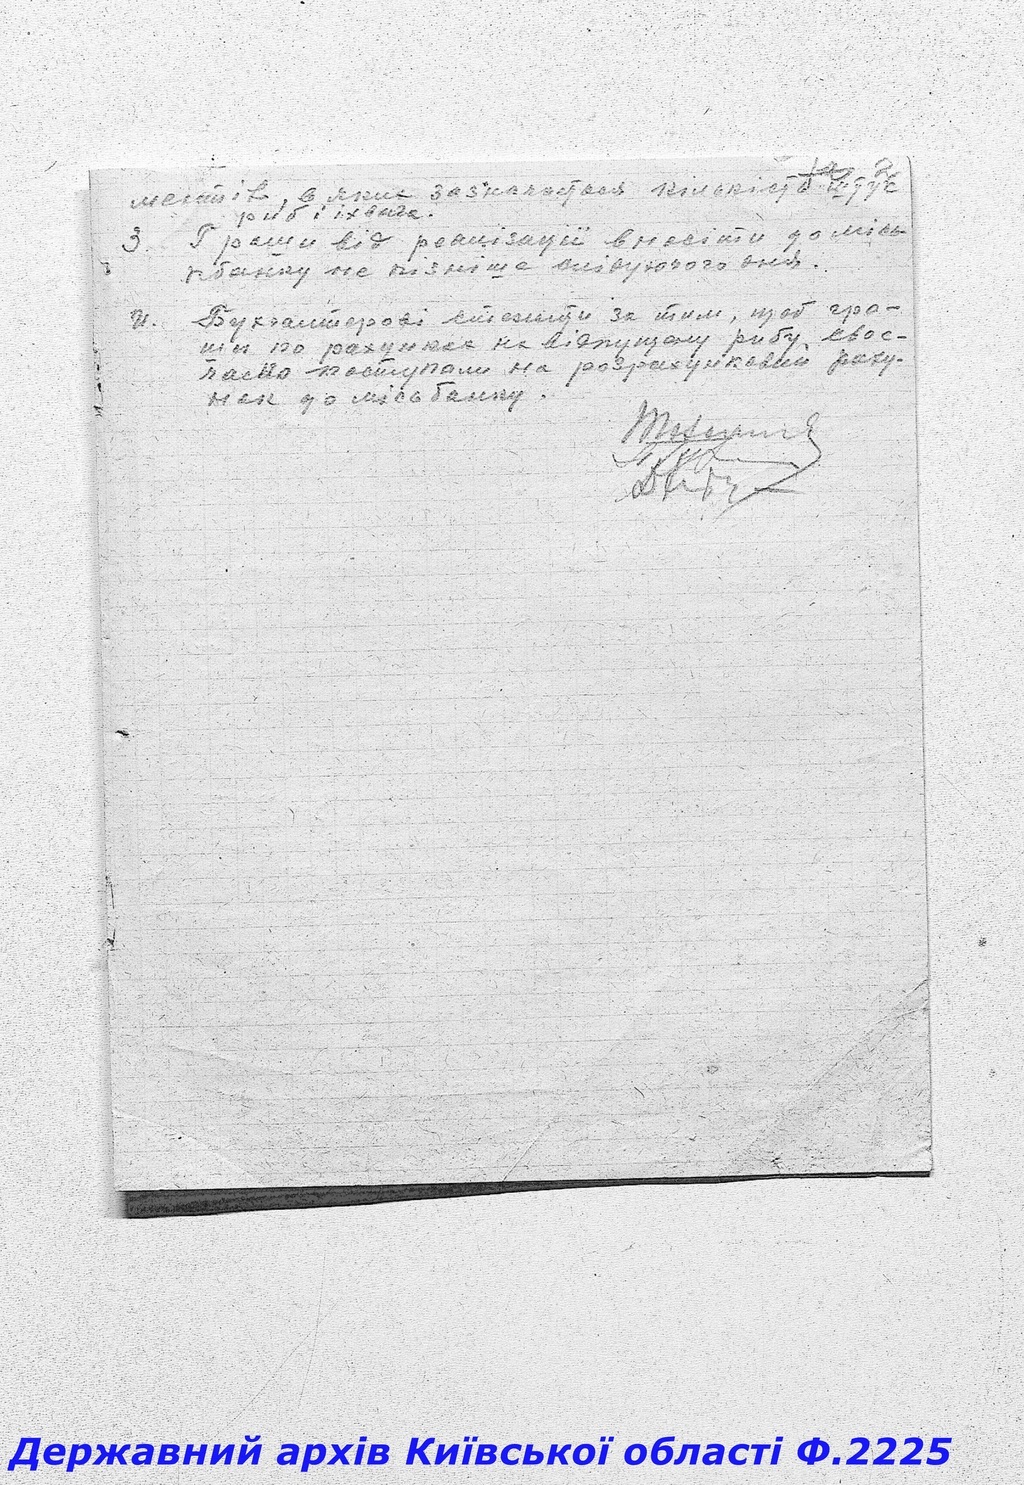 ментів, в яких зазначається кількість штук
риб і їх вага.
3. Гроши від реалізації вносити до місь
кбанку не пізніше слідуючого дня.
4. Бухгалтерові стежити за тим, щоб гро-
ши по рахунках на відпущену рибу, своє-
часно поступали на розрахунковий раху-
нок до міськбанку.
Державний архів Київської області Ф.2225